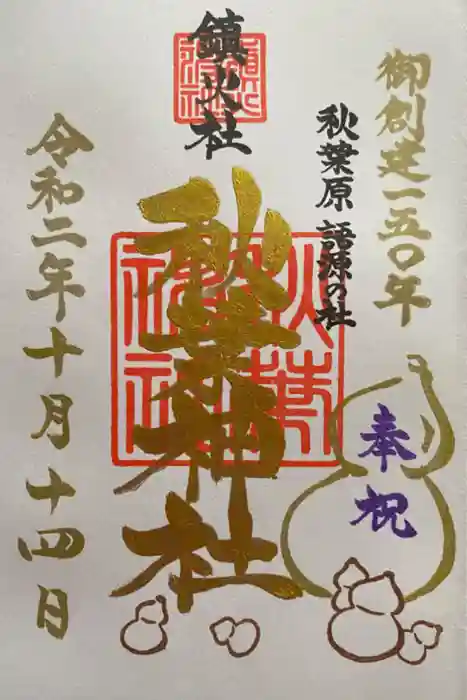 御創建一五〇年
秋葉原 語源の社
鎮火社
秋葉神社
奉祝
令和二年十月十四日
鎮火社
秋葉神社